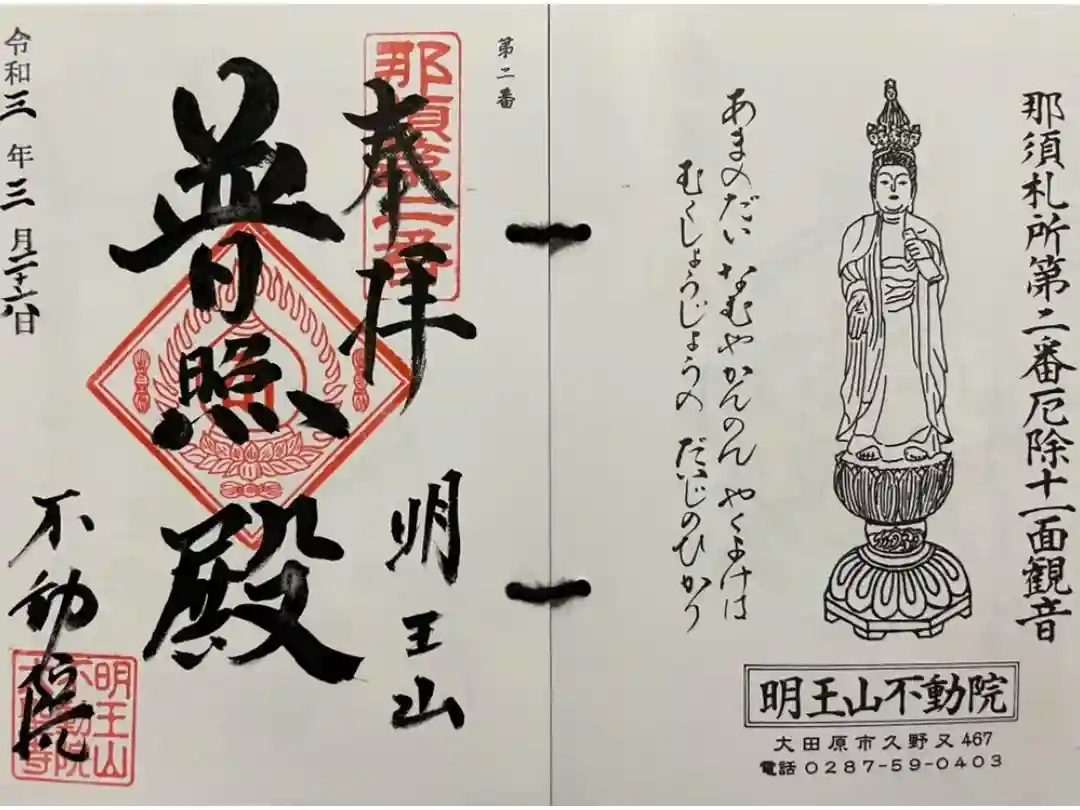 那須札所第二番厄除十一面観音
あまのだい なむやかんのん やくよけは
むくしょうじょうの だいじのひかり
明王山不動院
大田原市久野又467
電話 0287-59-0403
第二番
那須第二番
奉拝
明王山
普照殿
不動院
明王山
不動院
令和三年三月二十六日